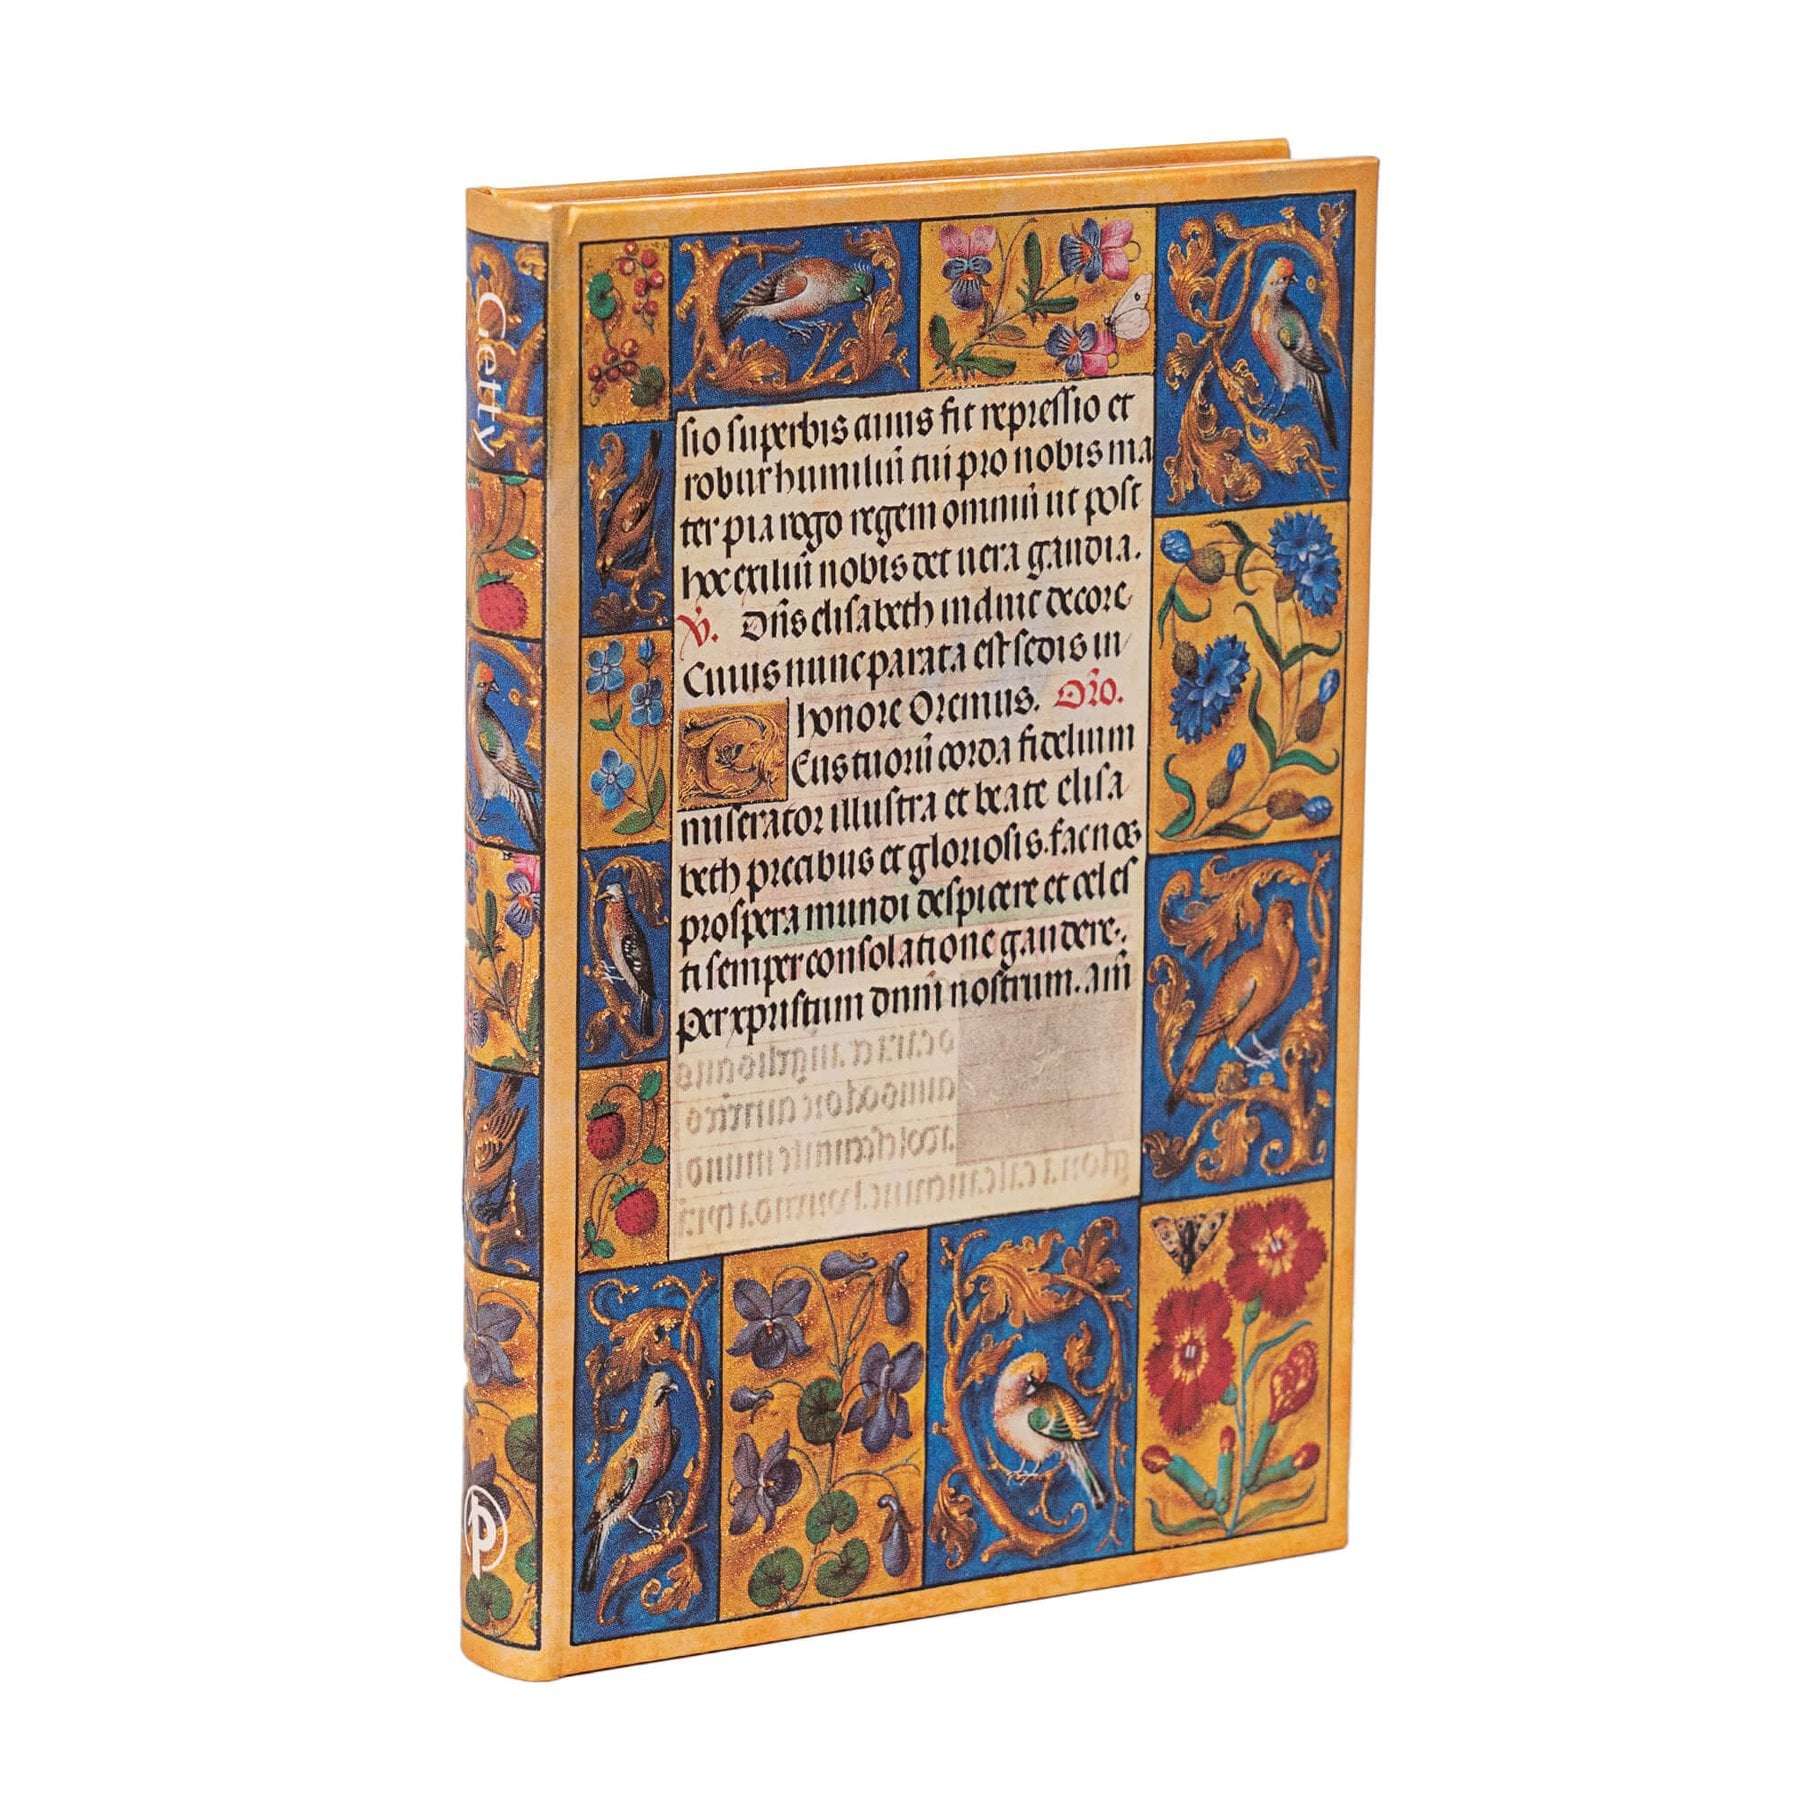 Getty
sio superbis cuius fit repressio et
robur humiliū tui pro nobis ma
ter pia rogo regem omniū ut post
hoc exiliū nobis det uera gaudia.
V. Dn̄s elisabeth induit decore
Cuius nunc parata est sedis in
honore Oremus. Oro̅.
Eus tuorū corda fidelium
miserator illustra et beate elisa
beth precibus et gloriosis. fac nos
prospera mundi despicere et celes
ti semper consolatione gaudere.
Per xp̄istum dnm̄ nostrum. Am̄
p